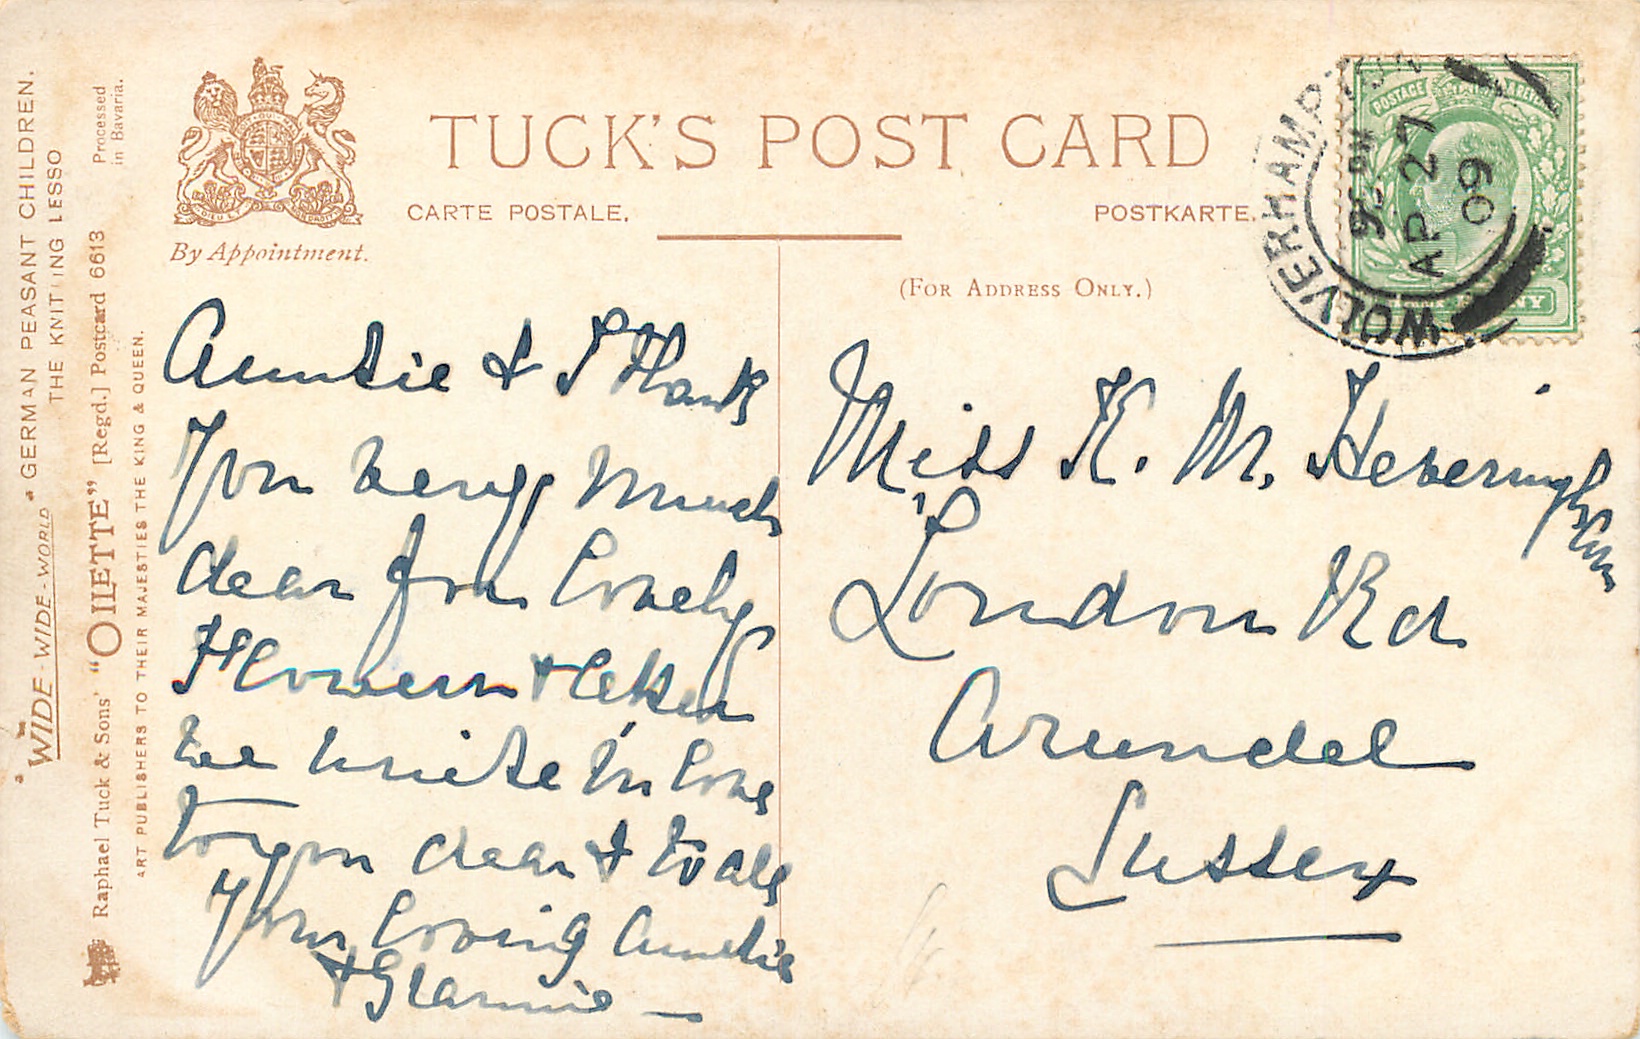 "WIDE-WIDE-WORLD" GERMAN PEASANT CHILDREN.
THE KNITTING LESSO
Raphael Tuck & Sons' "OILETTE" [Regd.] Postcard 6613
Processed
in Bavaria.
ART PUBLISHERS TO THEIR MAJESTIES THE KING & QUEEN.
By Appointment.
TUCK'S POST CARD
CARTE POSTALE.
POSTKARTE.
(FOR ADDRESS ONLY.)
WOLVERHAMPTON
AP 27
09
POSTAGE
Auntie & I Thank
You very much
dear for lovely
Flowers &
we unite in love
to you dear & to all
Your loving Auntie
& Grannie
Miss K. M. Heveringham
London Rd
Arundel
Sussex